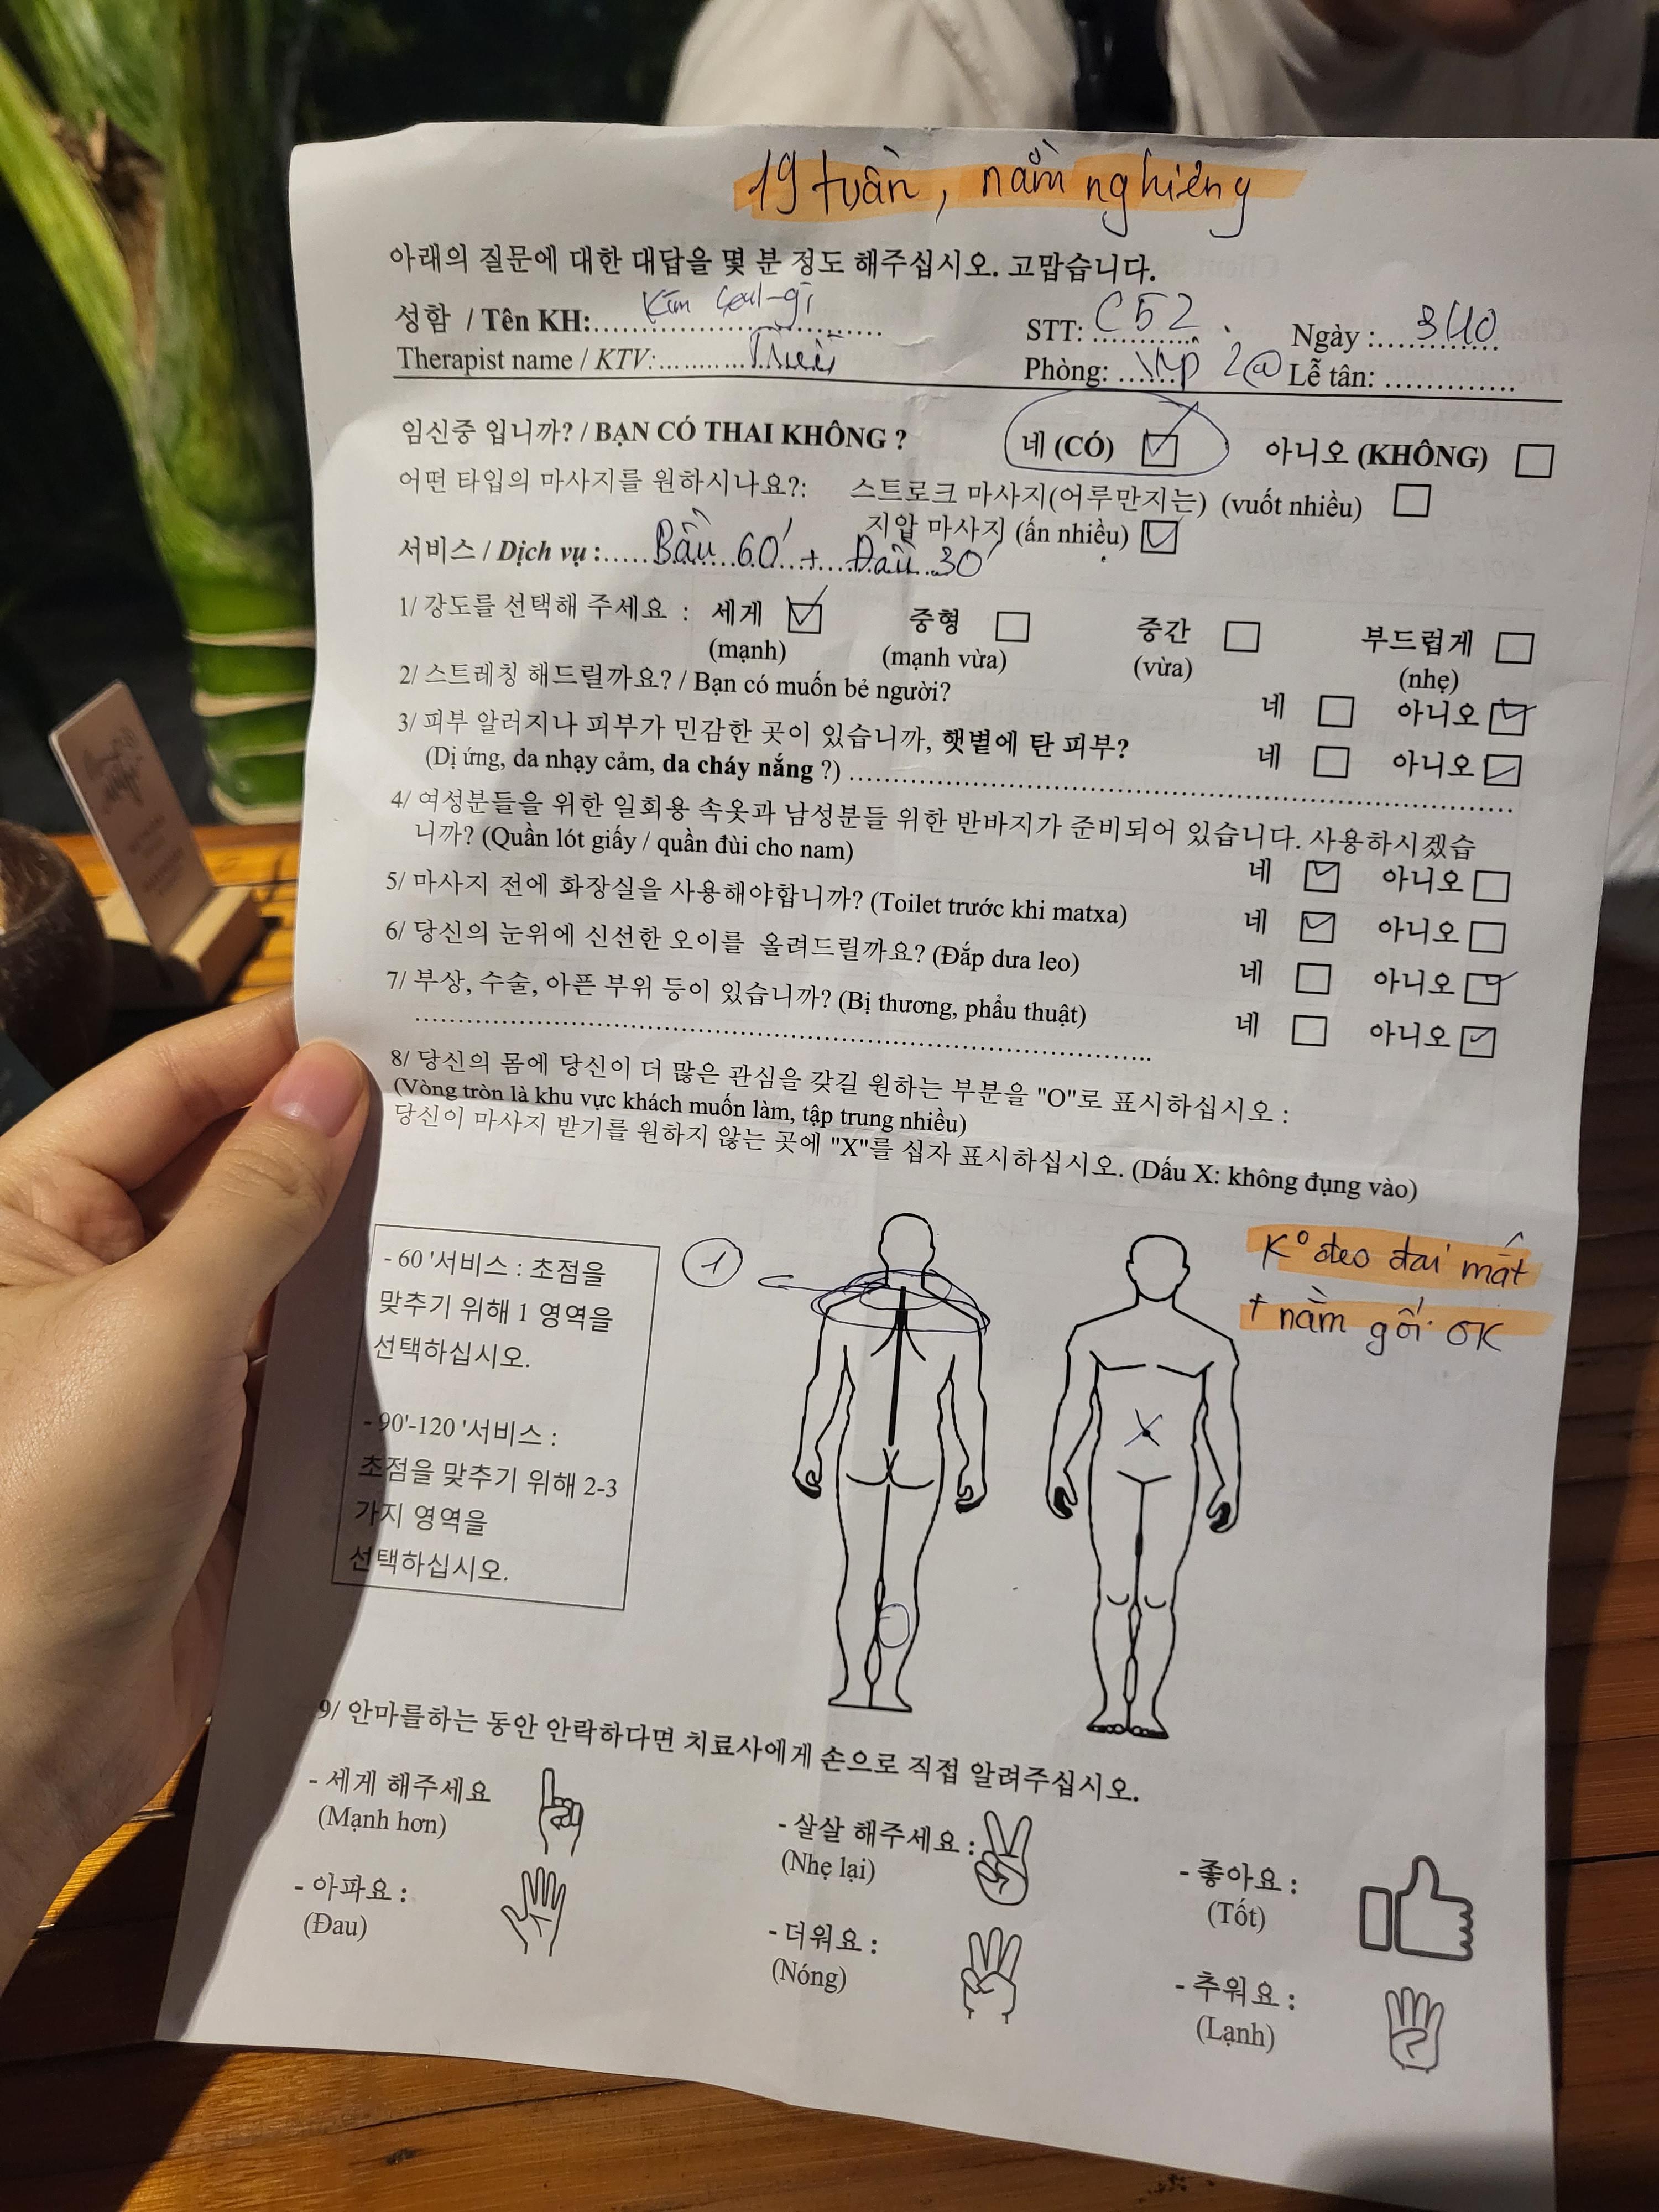 19 tuần, nằm nghiêng
아래의 질문에 대한 대답을 몇 분 정도 해주십시오. 고맙습니다.
성함 / Tên KH: Kim Seul-gi STT: C52 Ngày :
Therapist name / KTV: Phòng: Lễ tân:
임신중 입니까? / BẠN CÓ THAI KHÔNG ? 네 (CÓ) 아니오 (KHÔNG)
어떤 타입의 마사지를 원하시나요?: 스트로크 마사지(어루만지는) (vuốt nhiều)
지압 마사지 (ấn nhiều)
서비스 / Dịch vụ : Bầu 60' + Đầu 30'
1/ 강도를 선택해 주세요 : 세게 중형 중간 부드럽게
(mạnh) (mạnh vừa) (vừa) (nhẹ)
2/ 스트레칭 해드릴까요? / Bạn có muốn bẻ người? 네 아니오
3/ 피부 알러지나 피부가 민감한 곳이 있습니까, 햇볕에 탄 피부? 네 아니오
(Dị ứng, da nhạy cảm, da cháy nắng ?)
4/ 여성분들을 위한 일회용 속옷과 남성분들 위한 반바지가 준비되어 있습니다. 사용하시겠습
니까? (Quần lót giấy / quần đùi cho nam) 네 아니오
5/ 마사지 전에 화장실을 사용해야합니까? (Toilet trước khi matxa) 네 아니오
6/ 당신의 눈위에 신선한 오이를 올려드릴까요? (Đắp dưa leo) 네 아니오
7/ 부상, 수술, 아픈 부위 등이 있습니까? (Bị thương, phẩu thuật) 네 아니오
8/ 당신의 몸에 당신이 더 많은 관심을 갖길 원하는 부분을 "O"로 표시하십시오 :
(Vòng tròn là khu vực khách muốn làm, tập trung nhiều)
당신이 마사지 받기를 원하지 않는 곳에 "X"를 십자 표시하십시오. (Dấu X: không đụng vào)
- 60 '서비스 : 초점을
맞추기 위해 1 영역을
선택하십시오.
- 90'-120 '서비스 :
초점을 맞추기 위해 2-3
가지 영역을
선택하십시오.
1
K° đeo đai mắt
+ nằm gối OK
9/ 안마를하는 동안 안락하다면 치료사에게 손으로 직접 알려주십시오.
- 세게 해주세요
(Mạnh hơn)
- 살살 해주세요 :
(Nhẹ lại)
- 좋아요 :
(Tốt)
- 아파요 :
(Đau)
- 더워요 :
(Nóng)
- 추워요 :
(Lạnh)